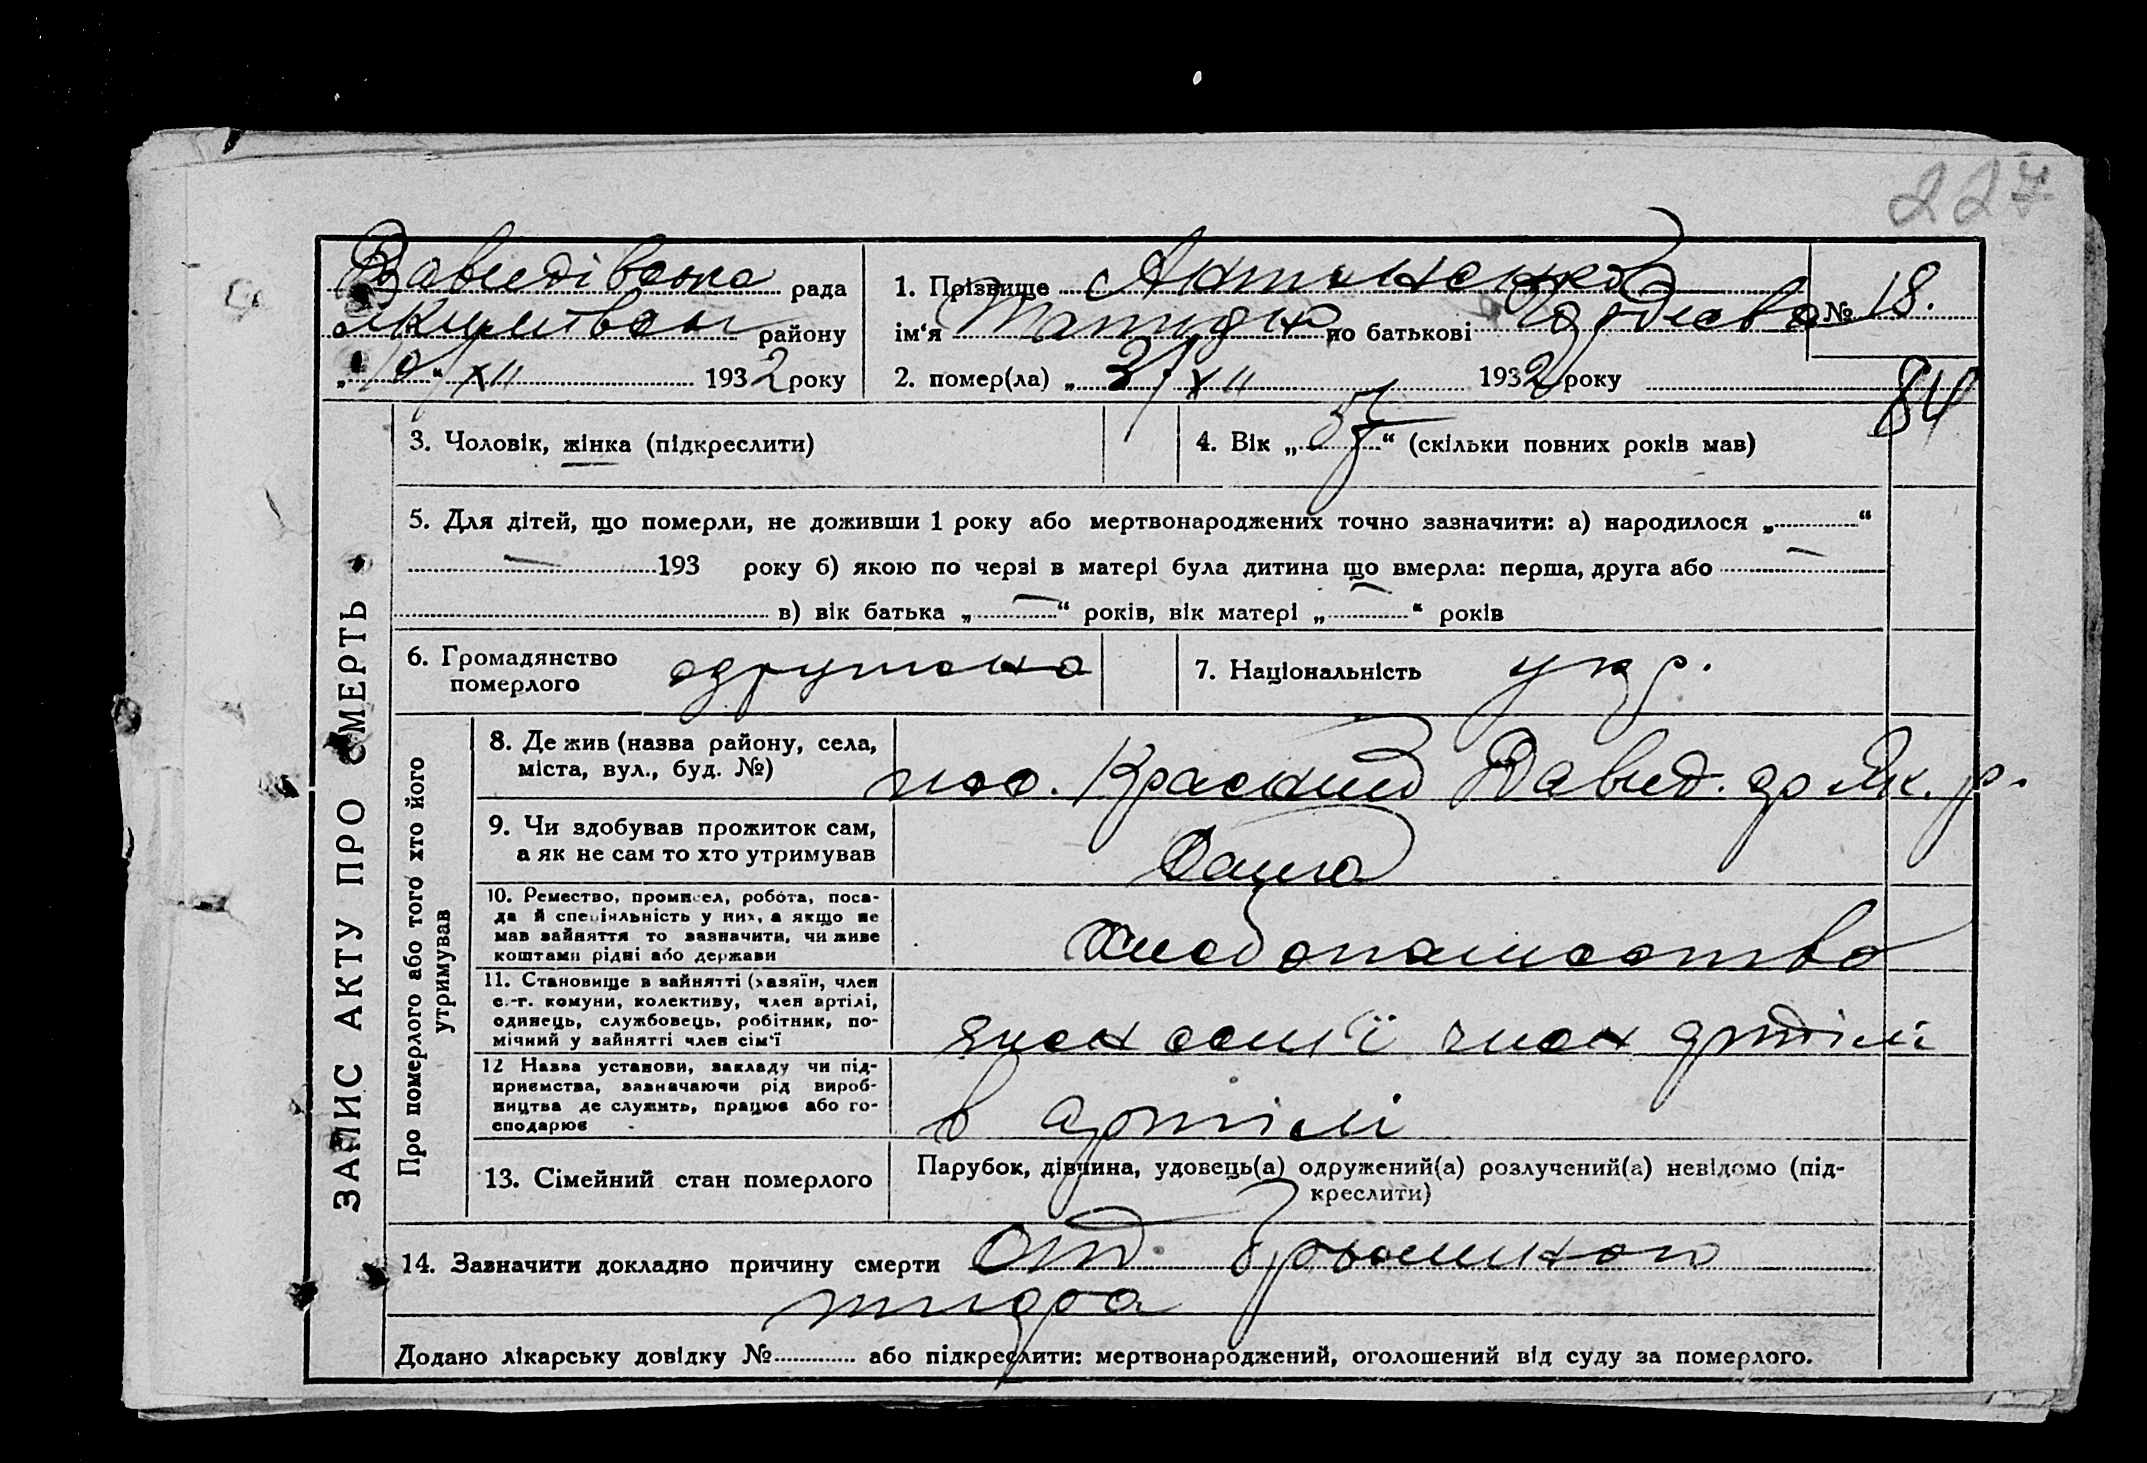 227
Давидівська рада
Якимівськ району
„10“ XII 1932 року
1. Прізвище Антоненко
ім'я по батькові
№ 18.
2. помер(ла) „3“ XII 1932 року
84
3. Чоловік, жінка (підкреслити)
4. Вік „57“ (скільки повних років мав)
5. Для дітей, що померли, не доживши 1 року або мертвонароджених точно зазначити: а) народилося „ — “
193 року б) якою по черзі в матері була дитина що вмерла: перша, друга або —
в) вік батька „ — “ років, вік матері „ — “ років
6. Громадянство
померлого
одружена
7. Національність укр.
ЗАПИС АКТУ ПРО СМЕРТЬ
Про померлого або того хто його
утримував
8. Де жив (назва району, села,
міста, вул., буд. №)
пос. Красный Давид. Як. р.
9. Чи здобував прожиток сам,
а як не сам то хто утримував
Сама
10. Ремество, промисел, робота, поса-
да й спеціяльність у них, а якщо не
мав зайняття то зазначити, чи живе
коштами рідні або держави
хлебопашество
11. Становище в зайнятті (хазяїн, член
с.-г. комуни, колективу, член артілі,
одинець, службовець, робітник, по-
мічний у зайнятті член сім'ї
член сем'ї член артілі
12 Назва установи, закладу чи під-
приємства, зазначаючи рід вироб-
ництва де служить, працює або го-
сподарює
в артілі
13. Сімейний стан померлого
Парубок, дівчина, удовець(а) одружений(а) розлучений(а) невідомо (під-
креслити)
14. Зазначити докладно причину смерти От брюшного
тифа
Додано лікарську довідку № або підкреслити: мертвонароджений, оголошений від суду за померлого.